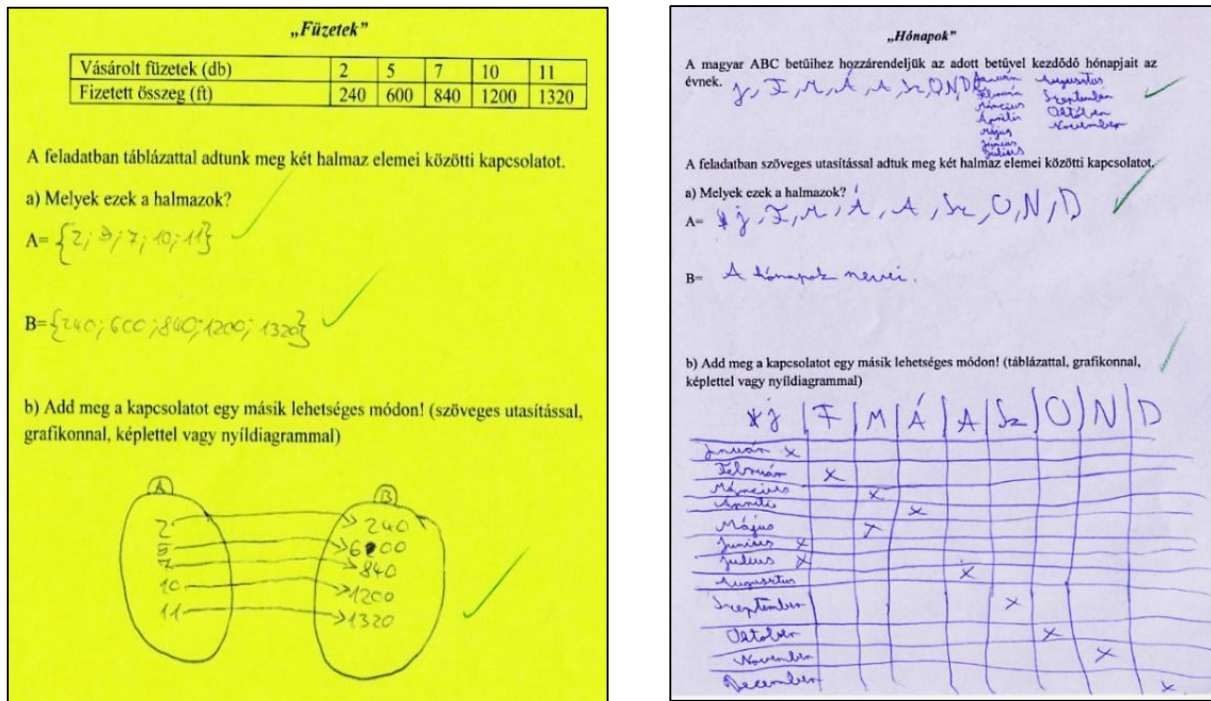 „Füzetek”
Vásárolt füzetek (db) 2 5 7 10 11
Fizetett összeg (ft) 240 600 840 1200 1320
A feladatban táblázattal adtunk meg két halmaz elemei közötti kapcsolatot.
a) Melyek ezek a halmazok?
A= {2; 5; 7; 10; 11}
B= {240; 600; 840; 1200; 1320}
b) Add meg a kapcsolatot egy másik lehetséges módon! (szöveges utasítással,
grafikonnal, képlettel vagy nyíldiagrammal)
A B
2 240
5 600
7 840
10 1200
11 1320
„Hónapok”
A magyar ABC betűihez hozzárendeljük az adott betűvel kezdődő hónapjait az
évnek. J, F, M, Á, A, Sz, O, N, D
Január Augusztus
Február Szeptember
Március Október
Április November
Május
Június
Július
A feladatban szöveges utasítással adtuk meg két halmaz elemei közötti kapcsolatot.
a) Melyek ezek a halmazok?
A= J, F, M, Á, A, Sz, O, N, D
B= A hónapok nevei.
b) Add meg a kapcsolatot egy másik lehetséges módon! (táblázattal, grafikonnal,
képlettel vagy nyíldiagrammal)
J F M Á A Sz O N D
Január x
Február x
Március x
Április x
Május x
Június x
Július x
Augusztus x
Szeptember x
Október x
November x
December x